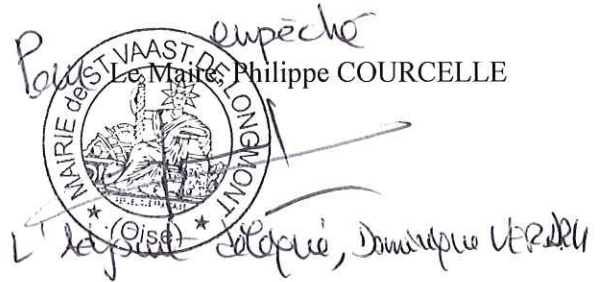 Pour empêché
Le Maire, Philippe COURCELLE
MAIRIE de ST VAAST DE LONGMONT
★ (Oise) ★
L'Adjoint délégué, Dominique